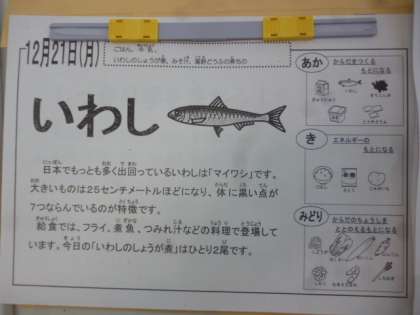 12月21日(月)
ごはん、牛乳、
いわしのしょうが煮、みそ汁、
いわし
日本でもっとも多く出回っているいわしは「マイワシ」です。
大きいものは25センチメートルほどになり、体に黒い点が
7つならんでいるのが特徴です。
給食では、フライ、煮魚、つみれ汁などの料理で登場して
います。今日の「いわしのしょうが煮」はひとり2尾です。
あか
からだをつくる
もとになる
き
エネルギーの
もとになる
みどり
からだのちょうしを
ととのえるもとになる